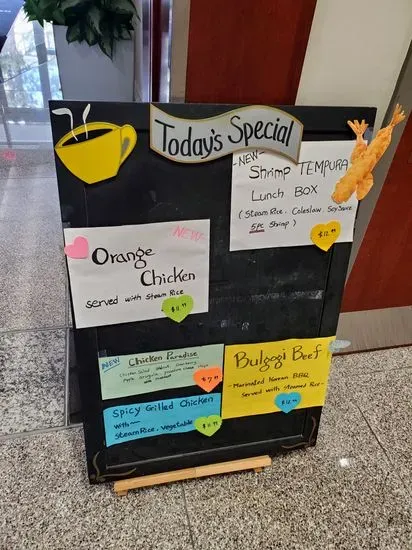 Today's Special
-NEW-
Shrimp TEMPURA
Lunch BOX
(Steam Rice, Coleslaw, Soy Sauce
5PC Shrimp)
$12.99
NEW
Orange
Chicken
Served with Steam Rice
$11.99
NEW
Chicken Paradise
$7.99
Bulgogi Beef
-Marinated Korean BBQ
served with steamed Rice-
$12.99
Spicy Grilled Chicken
with
Steam Rice, vegetable
$11.99